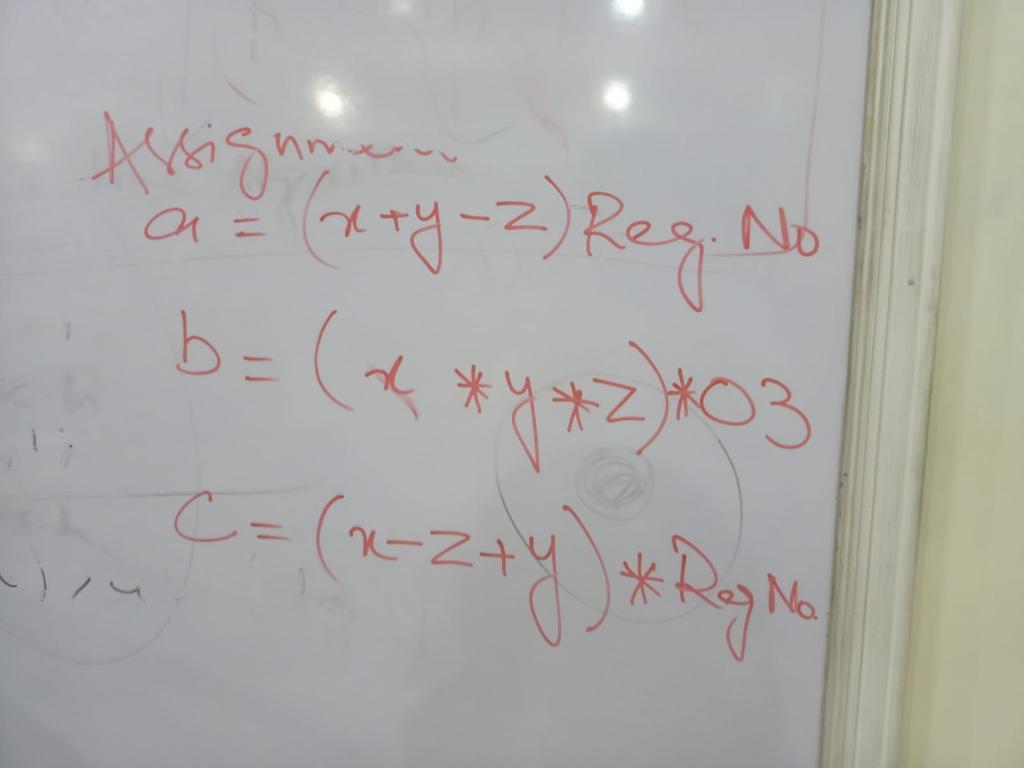 Assignment
a = (x+y-z) Reg. No
b = (x *y*z)*03
c = (x-z+y) *Reg No.